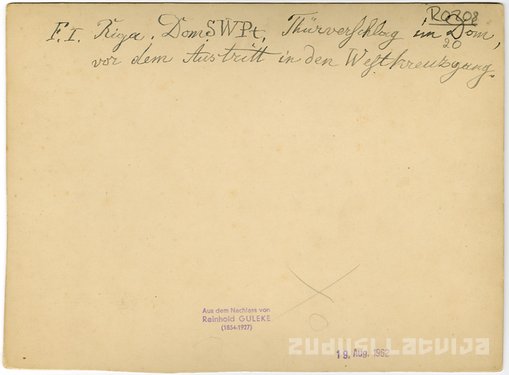 R0708
F.I. Riga. Dom. SWPt. Thürverschlag im Dom,
20
vor dem Austritt in den Westkreuzgang.
Aus dem Nachlass von
Reinhold GULEKE
(1834-1927)
19. Aug. 1962
zudusi Latvija